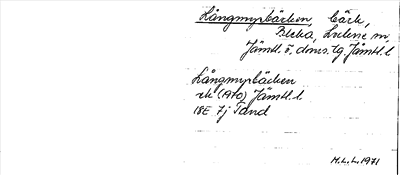 Långmyrbäcken, bäck,
Bleka, Lockne sn,
Jämtl. ö. dms. tg. Jämtl. l.
Långmyrbäcken
rk (A70) Jämtl. l.
18E 7j Tand
M.L.L. 1971